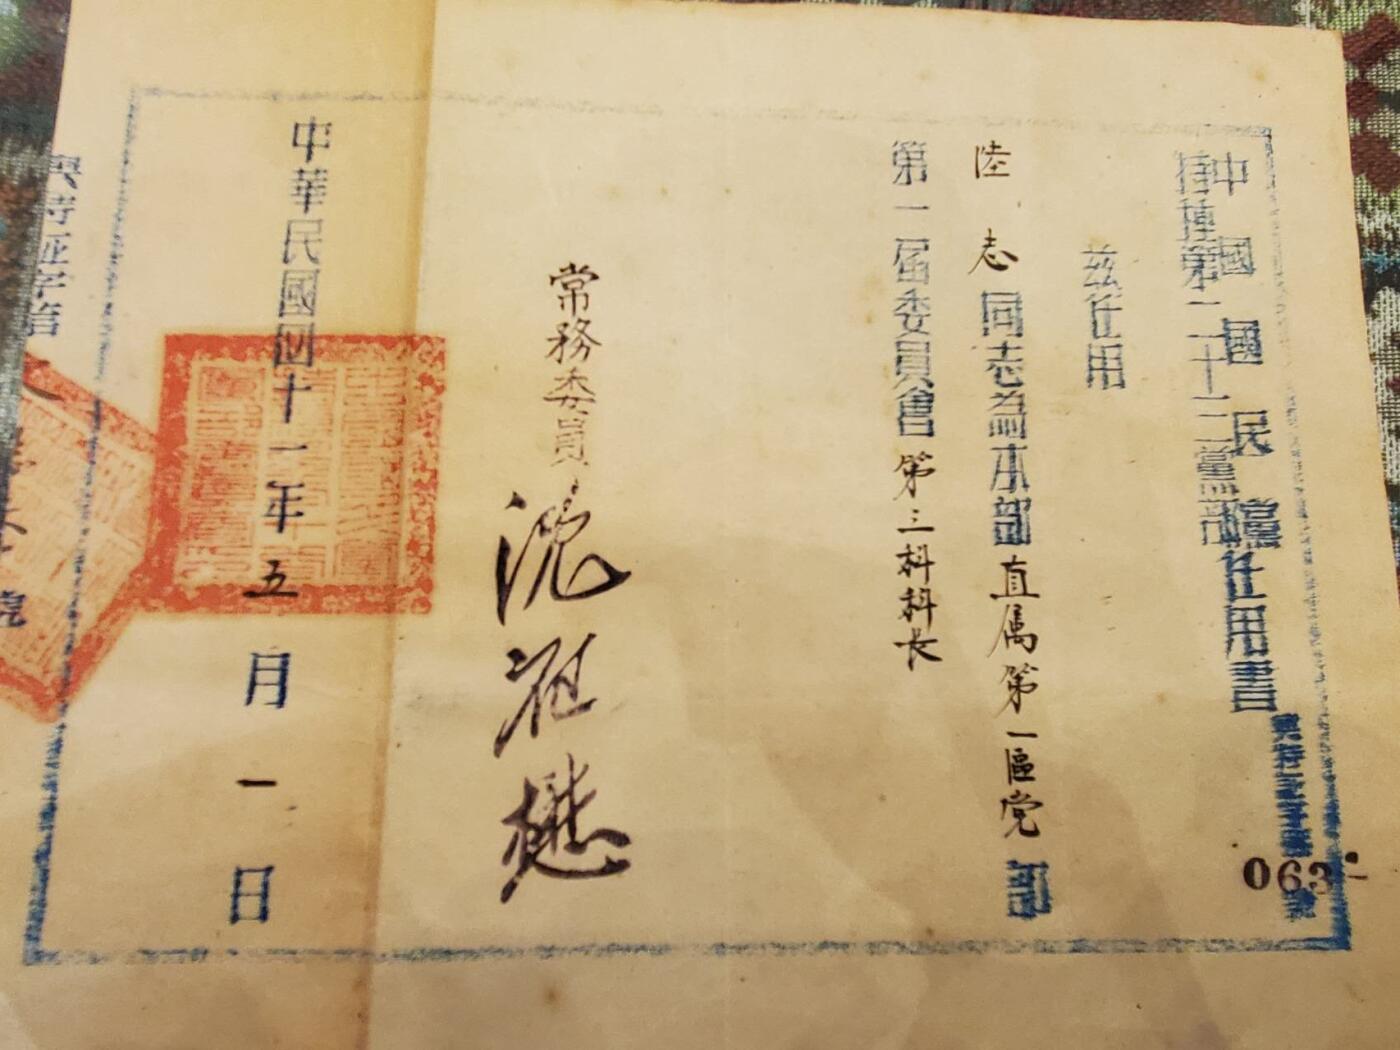 中國國民黨任用書
特種第二十三黨部
茲任用
陸志同志為本部直属第一區党部
第一屆委員會第三科科長
常務委員沈祖懋
中華民國四十一年五月一日